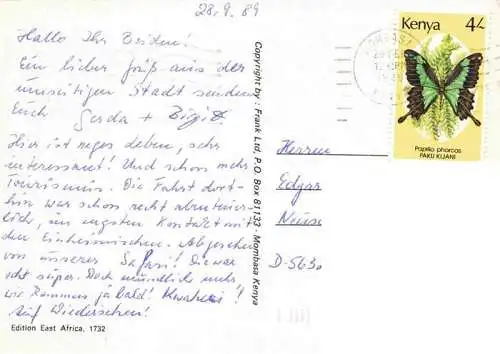 28.9.89
Hallo Ihr Beiden!
Ein lieber Gruß aus der
umseitigen Stadt senden
Euch Gerda + Birgit
Hier ist reges Leben, sehr
interessant! Und schon mehr
Tourismus. Die Fahrt dort-
hin war schon recht abenteuer-
lich, im engsten Kontakt mit
den Einheimischen. Abgesehen
von unserer Safari! Die war
echt super. Doch mündlich mehr
wir kommen ja bald! Kwaheri!
Auf Wiedersehen!
Edition East Africa, 1732
Copyright by: Frank Ltd, P.O. Box 81133 - Mombasa Kenya
Kenya 4/-
Papilio phorcas
PAKU KIJANI
Herren
Edgar
Neuse
D-5630